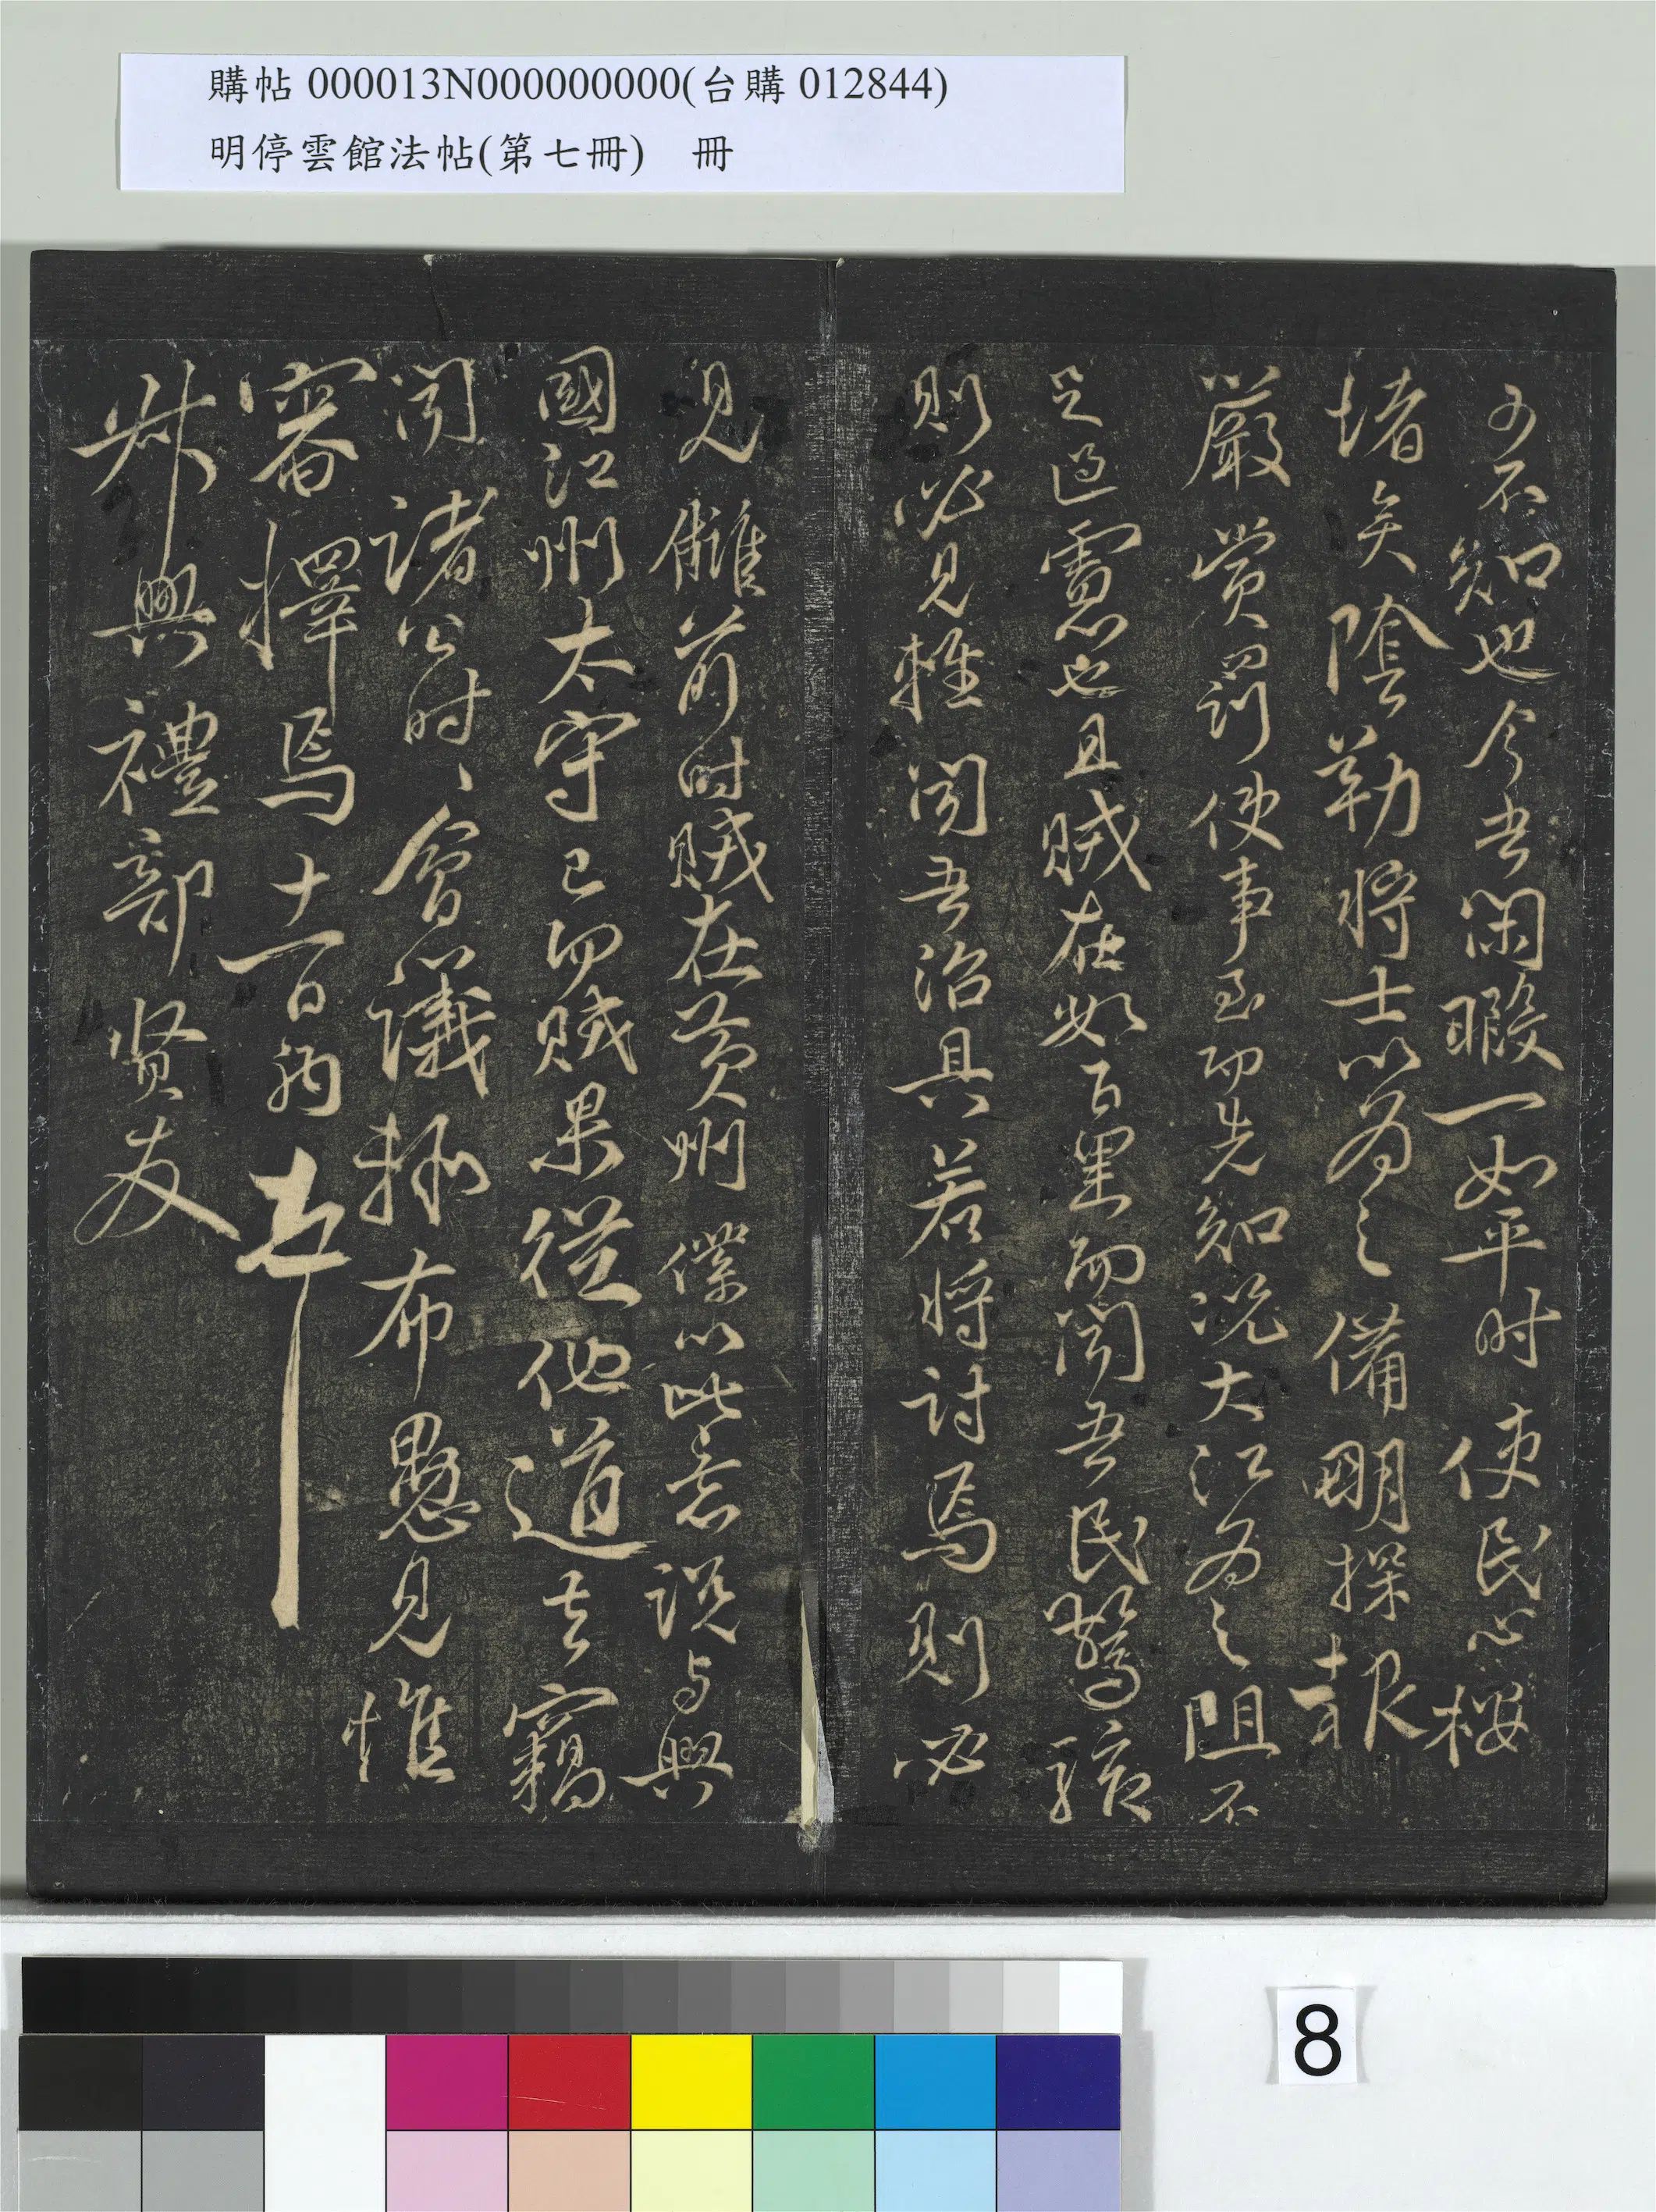 購帖 000013N000000000(台購 012844)
明停雲館法帖(第七冊)　冊
可不知也今吾閑暇一如平时使民心按
堵矣陰勒將士以為之備明探報
嚴賞罰使事至而先知况大江為之阻不
足過慮也且賊在數百里而聞吾民驚駭
則必見輕聞吾治具若將討焉則必
見讎前时賊在黄州僕以此意説与興
國江州太守已而賊果從他道去竊
聞諸公时、會議極布愚見惟
審擇焉十一百納
叔興禮部贤友
8